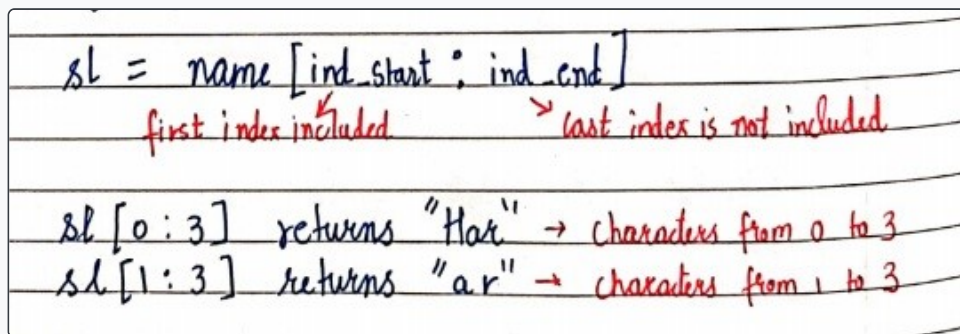 sl = name [ind_start : ind_end]
first index included
last index is not included
sl [0 : 3] returns "Har" → characters from 0 to 3
sl [1 : 3] returns "ar" → characters from 1 to 3